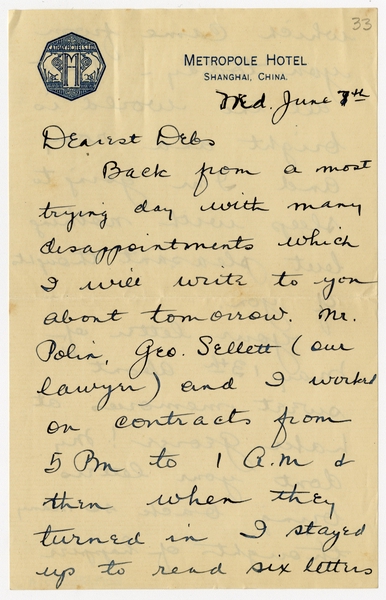 33
CATHAY HOTELS LTD
METROPOLE HOTEL
SHANGHAI, CHINA.
Wed. June 7th
Dearest Debs
Back from a most
trying day with many
disappointments which
I will write to you
about tomorrow. Mr.
Polin, Geo. Sellett (our
lawyer) and I worked
on contracts from
5 PM to 1 A.M &
then when they
turned in I stayed
up to read six letters